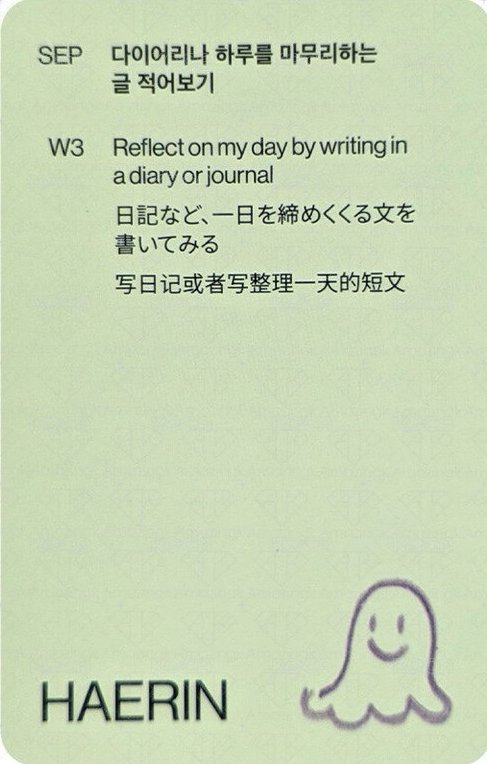 SEP 다이어리나 하루를 마무리하는
글 적어보기
W3 Reflect on my day by writing in
a diary or journal
日記など、一日を締めくくる文を
書いてみる
写日记或者写整理一天的短文
HAERIN